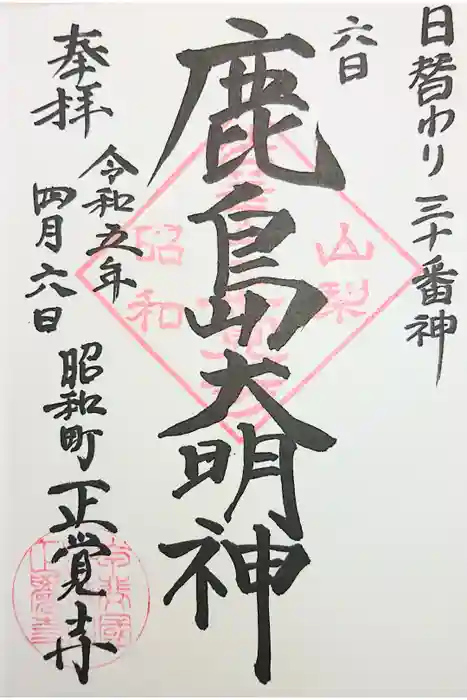 日替わり 三十番神
六日
鹿島大明神
奉拝
令和五年
四月六日
昭和町 正覚寺
山梨
昭和